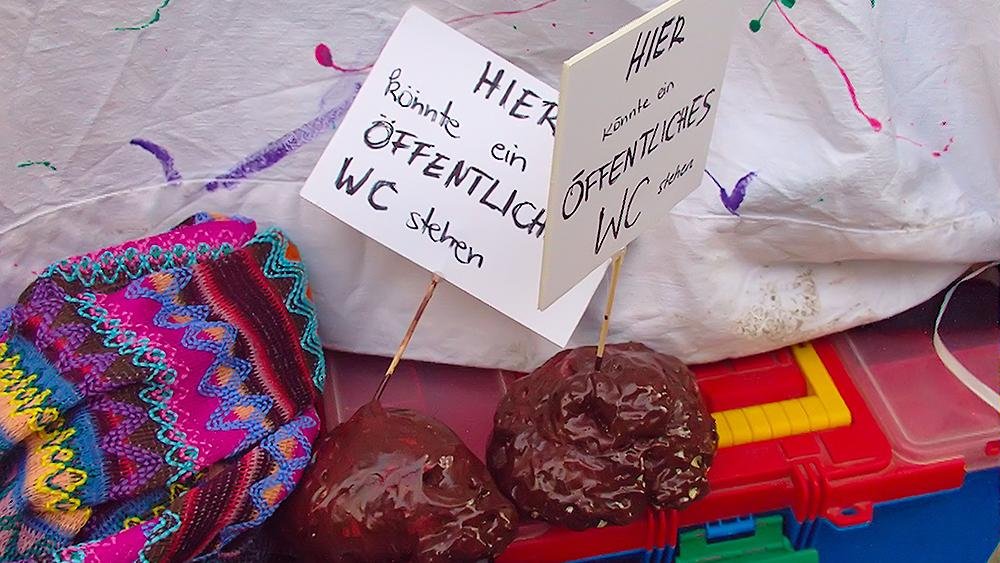 HIER
könnte ein
ÖFFENTLICH
WC stehen
HIER
könnte ein
ÖFFENTLICHES
WC stehen